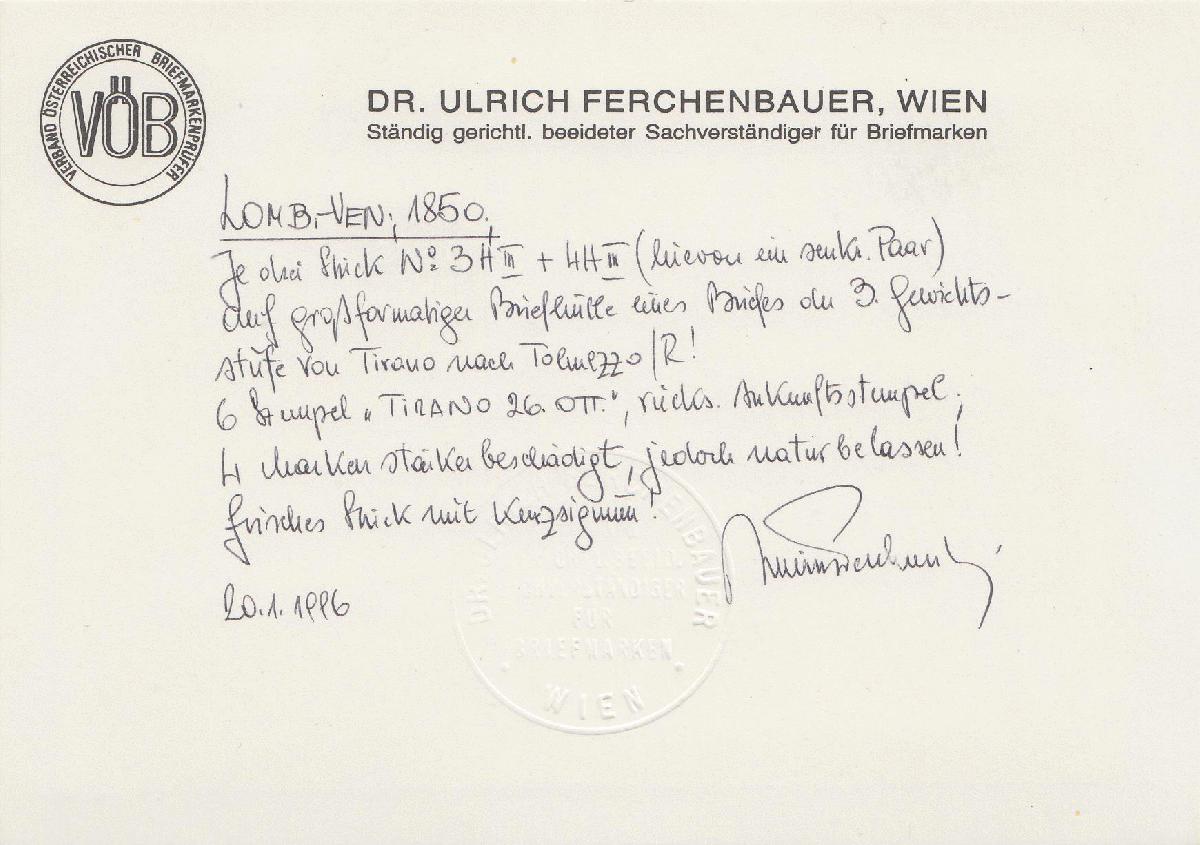 VERBAND ÖSTERREICHISCHER BRIEFMARKENPRÜFER
VÖB
DR. ULRICH FERCHENBAUER, WIEN
Ständig gerichtl. beeideter Sachverständiger für Briefmarken
LOMB.-VEN., 1850,
Je drei Stück Nº 3HIII + 4HIII (hievon ein senkr. Paar)
auf großformatiger Briefhülle eines Briefes der 3. Gewichts-
stufe von Tirano nach Tolmezzo/R!
6 Stempel „TIRANO 26. OTT.", rücks. Ankunftsstempel.
4 Marken stärker beschädigt, jedoch naturbelassen!
frisches Stück mit
20.1.1996
FERCHENBAUER
FÜR
BRIEFMARKEN
WIEN